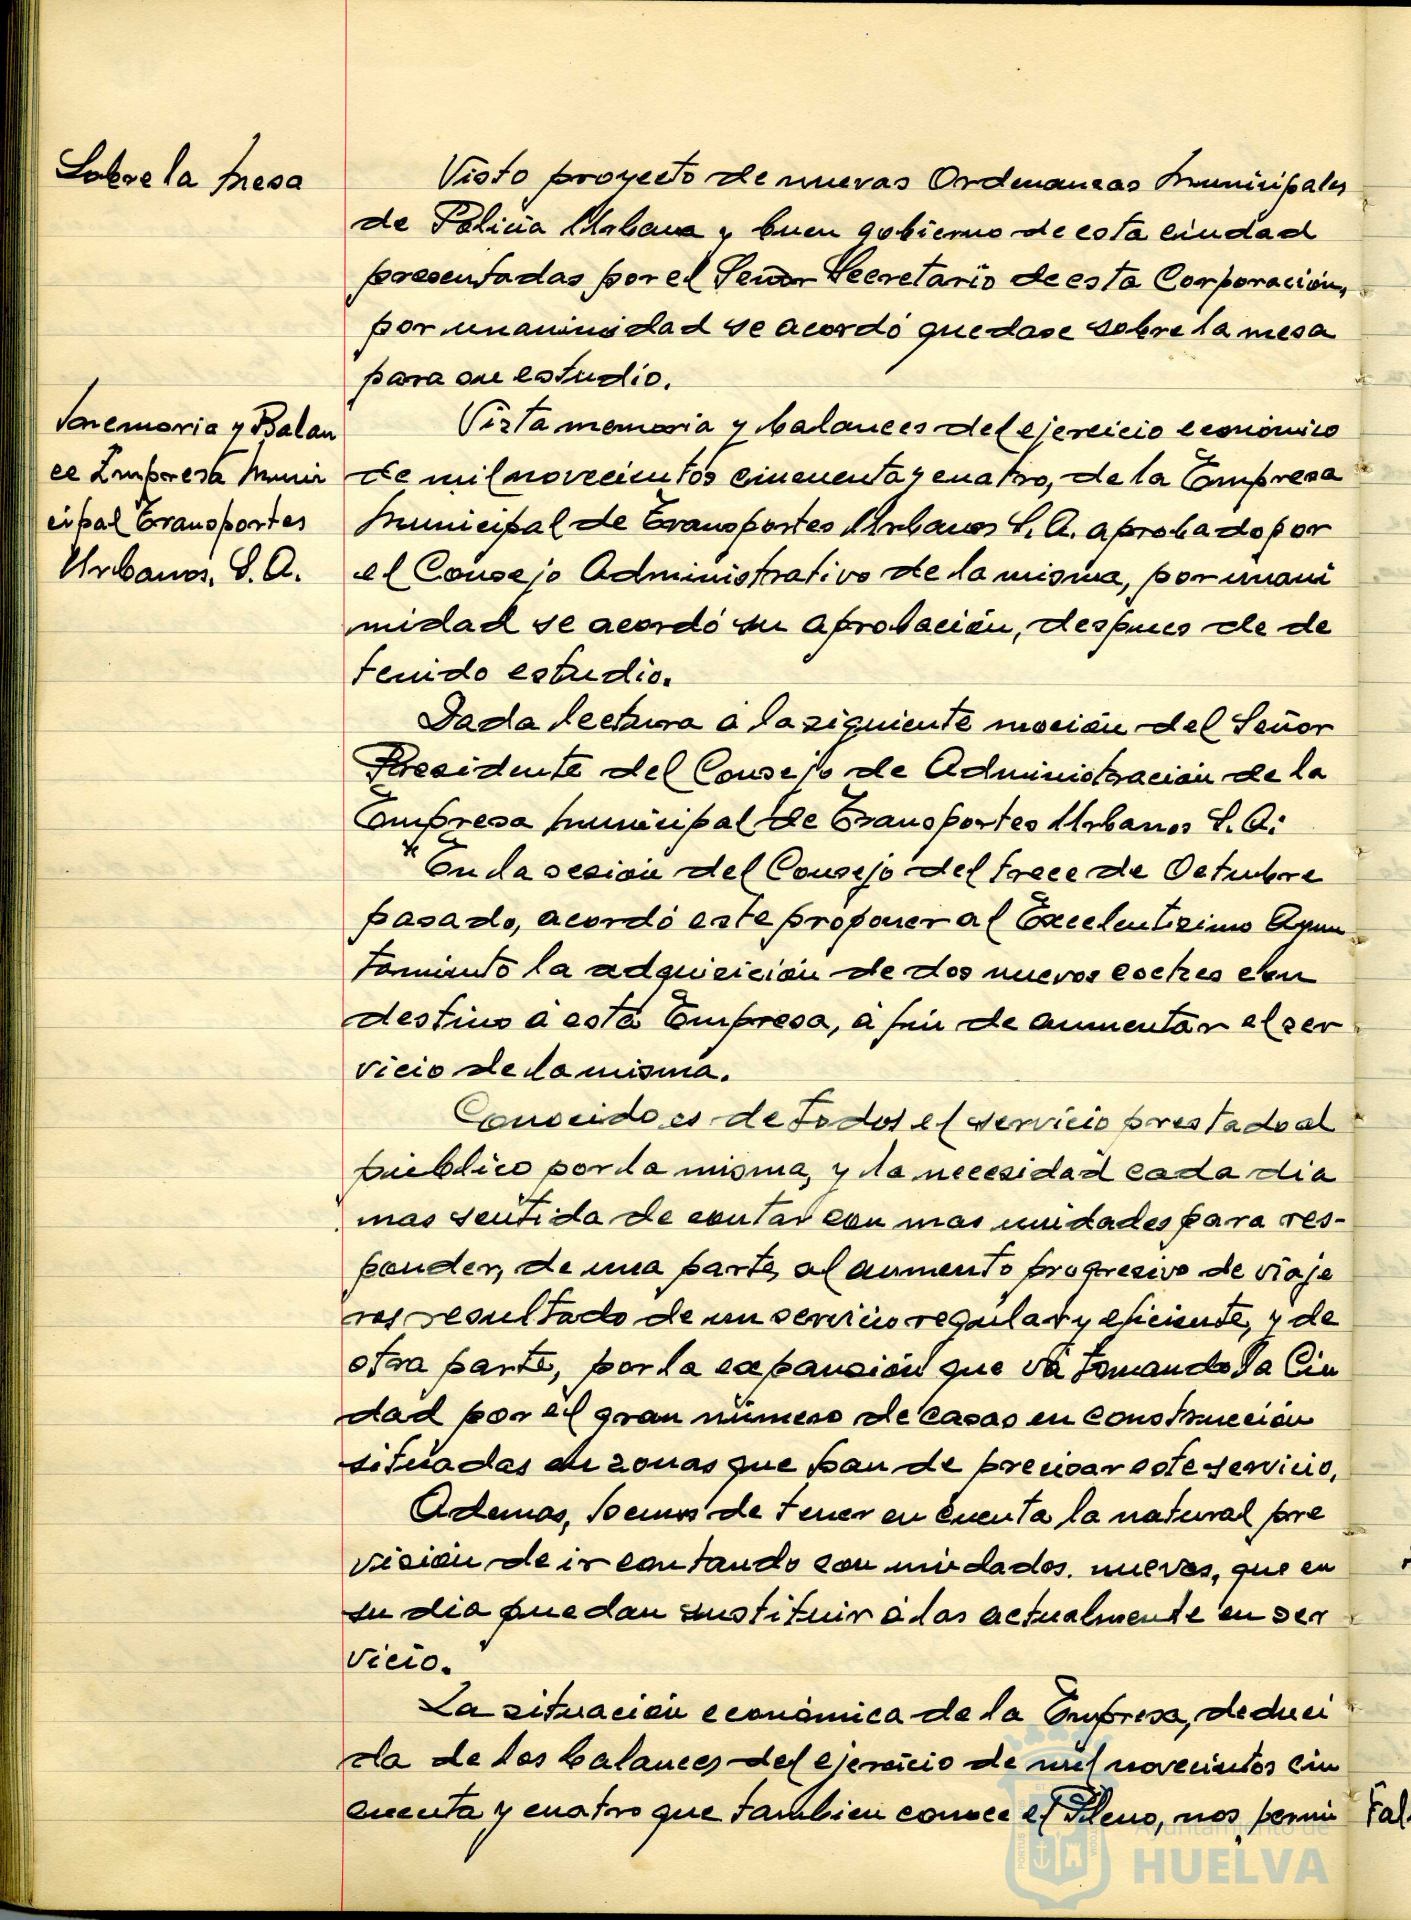 Sobre la mesa
Visto proyecto de nuevas Ordenanzas Municipales
de Policía Urbana y buen gobierno de esta ciudad
presentadas por el Señor Secretario de esta Corporación,
por unanimidad se acordó quedase sobre la mesa
para su estudio.
Memoria y Balan
ce Empresa Muni
cipal Transportes
Urbanos, S. A.
Vista memoria y balances del ejercicio económico
de mil novecientos cincuenta y cuatro, de la Empresa
Municipal de Transportes Urbanos S. A. aprobado por
el Consejo Administrativo de la misma, por unani
midad se acordó su aprobación, despues de de
tenido estudio.
Dada lectura á la siguiente moción del Señor
Presidente del Consejo de Administración de la
Empresa Municipal de Transportes Urbanos S. A:
"En la sesión del Consejo del trece de Octubre
pasado, acordó este proponer al Excelentisimo Ayun
tamiento la adquisición de dos nuevos coches con
destino á esta Empresa, á fin de aumentar el ser
vicio de la misma.
Conocido es de todos el servicio prestado al
público por la misma, y la necesidad cada dia
mas sentida de contar con mas unidades para res-
ponder, de una parte, al aumento progresivo de viaje
ros resultado de un servicio regular y eficiente, y de
otra parte, por la expansión que vá tomando la Ciu
dad por el gran número de casas en construcción
situadas en zonas que han de precisar este servicio.
Ademas, hemos de tener en cuenta la natural pre
visión de ir contando con unidades. nuevas, que en
su dia puedan sustituir á las actualmente en ser
vicio.
La situación económica de la Empresa, deduci
da de los balances del ejercicio de mil novecientos cin
cuenta y cuatro que tambien conoce el Pleno, nos permi
Fal
Ayuntamiento de
HUELVA